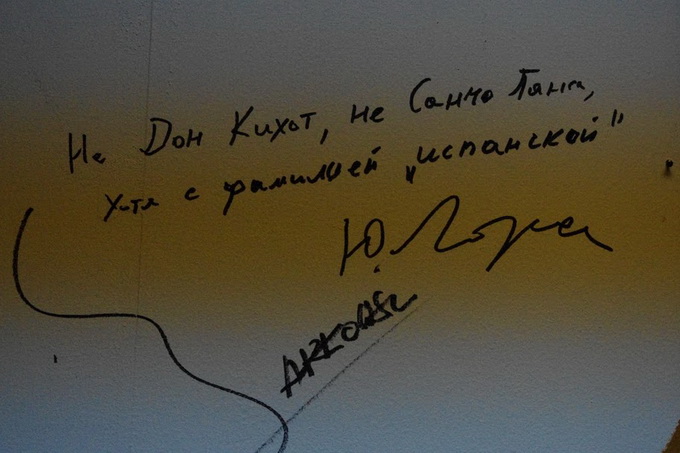 Не Дон Кихот, не Санчо Панса,
Хотя с фамилией „испанской"
Ю. Лорес